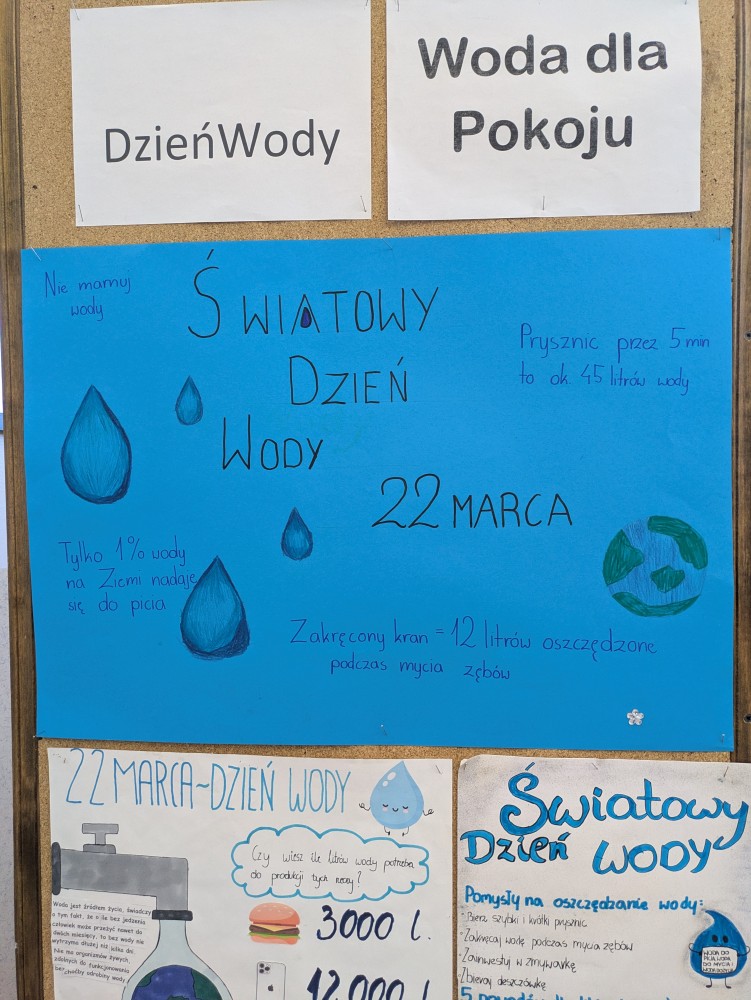 DzieńWody
Woda dla
Pokoju
Nie marnuj
wody
ŚWIATOWY
DZIEŃ
WODY
22 MARCA
Prysznic przez 5 min
to ok. 45 litrów wody
Tylko 1% wody
na Ziemi nadaje
się do picia
Zakręcony kran = 12 litrów oszczędzone
podczas mycia zębów
22 MARCA~DZIEŃ WODY
Czy wiesz ile litrów wody potrzeba
do produkcji tych rzeczy?
3000 l.
12.000 l
Woda jest źródłem życia, świadczy
o tym fakt, że o ile bez jedzenia
człowiek może przeżyć nawet do
dwóch miesięcy, to bez wody nie
wytrzyma dłużej niż kilka dni.
Nie ma organizmów żywych,
zdolnych do funkcjonowania
bez choćby odrobiny wody
Światowy
Dzień WODY
Pomysły na oszczędzanie wody:
- Bierz szybki i krótki prysznic
- Zakręcaj wodę podczas mycia zębów
- Zainwestuj w zmywarkę
- Zbieraj deszczówkę
WODA DO
PICIA, WODA
DO MYCIA I